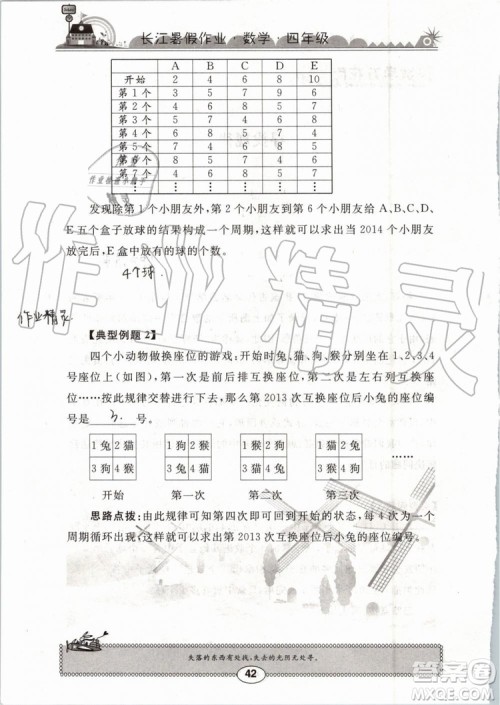 长江暑假作业·数学·四年级
A B C D E
开始 2 4 6 8 10
第1个 3 5 7 9 6
第2个 4 6 8 5 7
第3个 5 7 4 6 8
第4个 6 8 5 7 4
第5个 7 4 6 8 5
第6个 8 5 7 4 6
第7个 4 6 8 5 7
⋮ ⋮ ⋮ ⋮ ⋮ ⋮
发现除第1个小朋友外,第2个小朋友到第6个小朋友给A、B、C、D、
E五个盒子放球的结果构成一个周期,这样就可以求出当2014个小朋友
放完后,E盒中放有的球的个数。
4个球
作业精灵
作业精灵
【典型例题2】
四个小动物做换座位的游戏:开始时兔、猫、狗、猴分别坐在1、2、3、4
号座位上(如图),第一次前后排互换座位,第二次是左右列互换座
位……按此规律交替进行下去,那么第2013次互换座位后小兔的座位编
号是 3. 号。
1兔 2猫 1狗 2猴 1猴 2狗 1猫 2兔
3狗 4猴 3兔 4猫 3猫 4兔 3猴 4狗
……
开始 第一次 第二次 第三次
思路点拨:由此规律可知第四次即可回到开始的状态,每4次为一个
周期循环出现,这样就可以求出第2013次互换座位后小兔的座位编号。
失落的东西有处找,失去的光阴无处寻。
42
答案圈
MXQE.COM